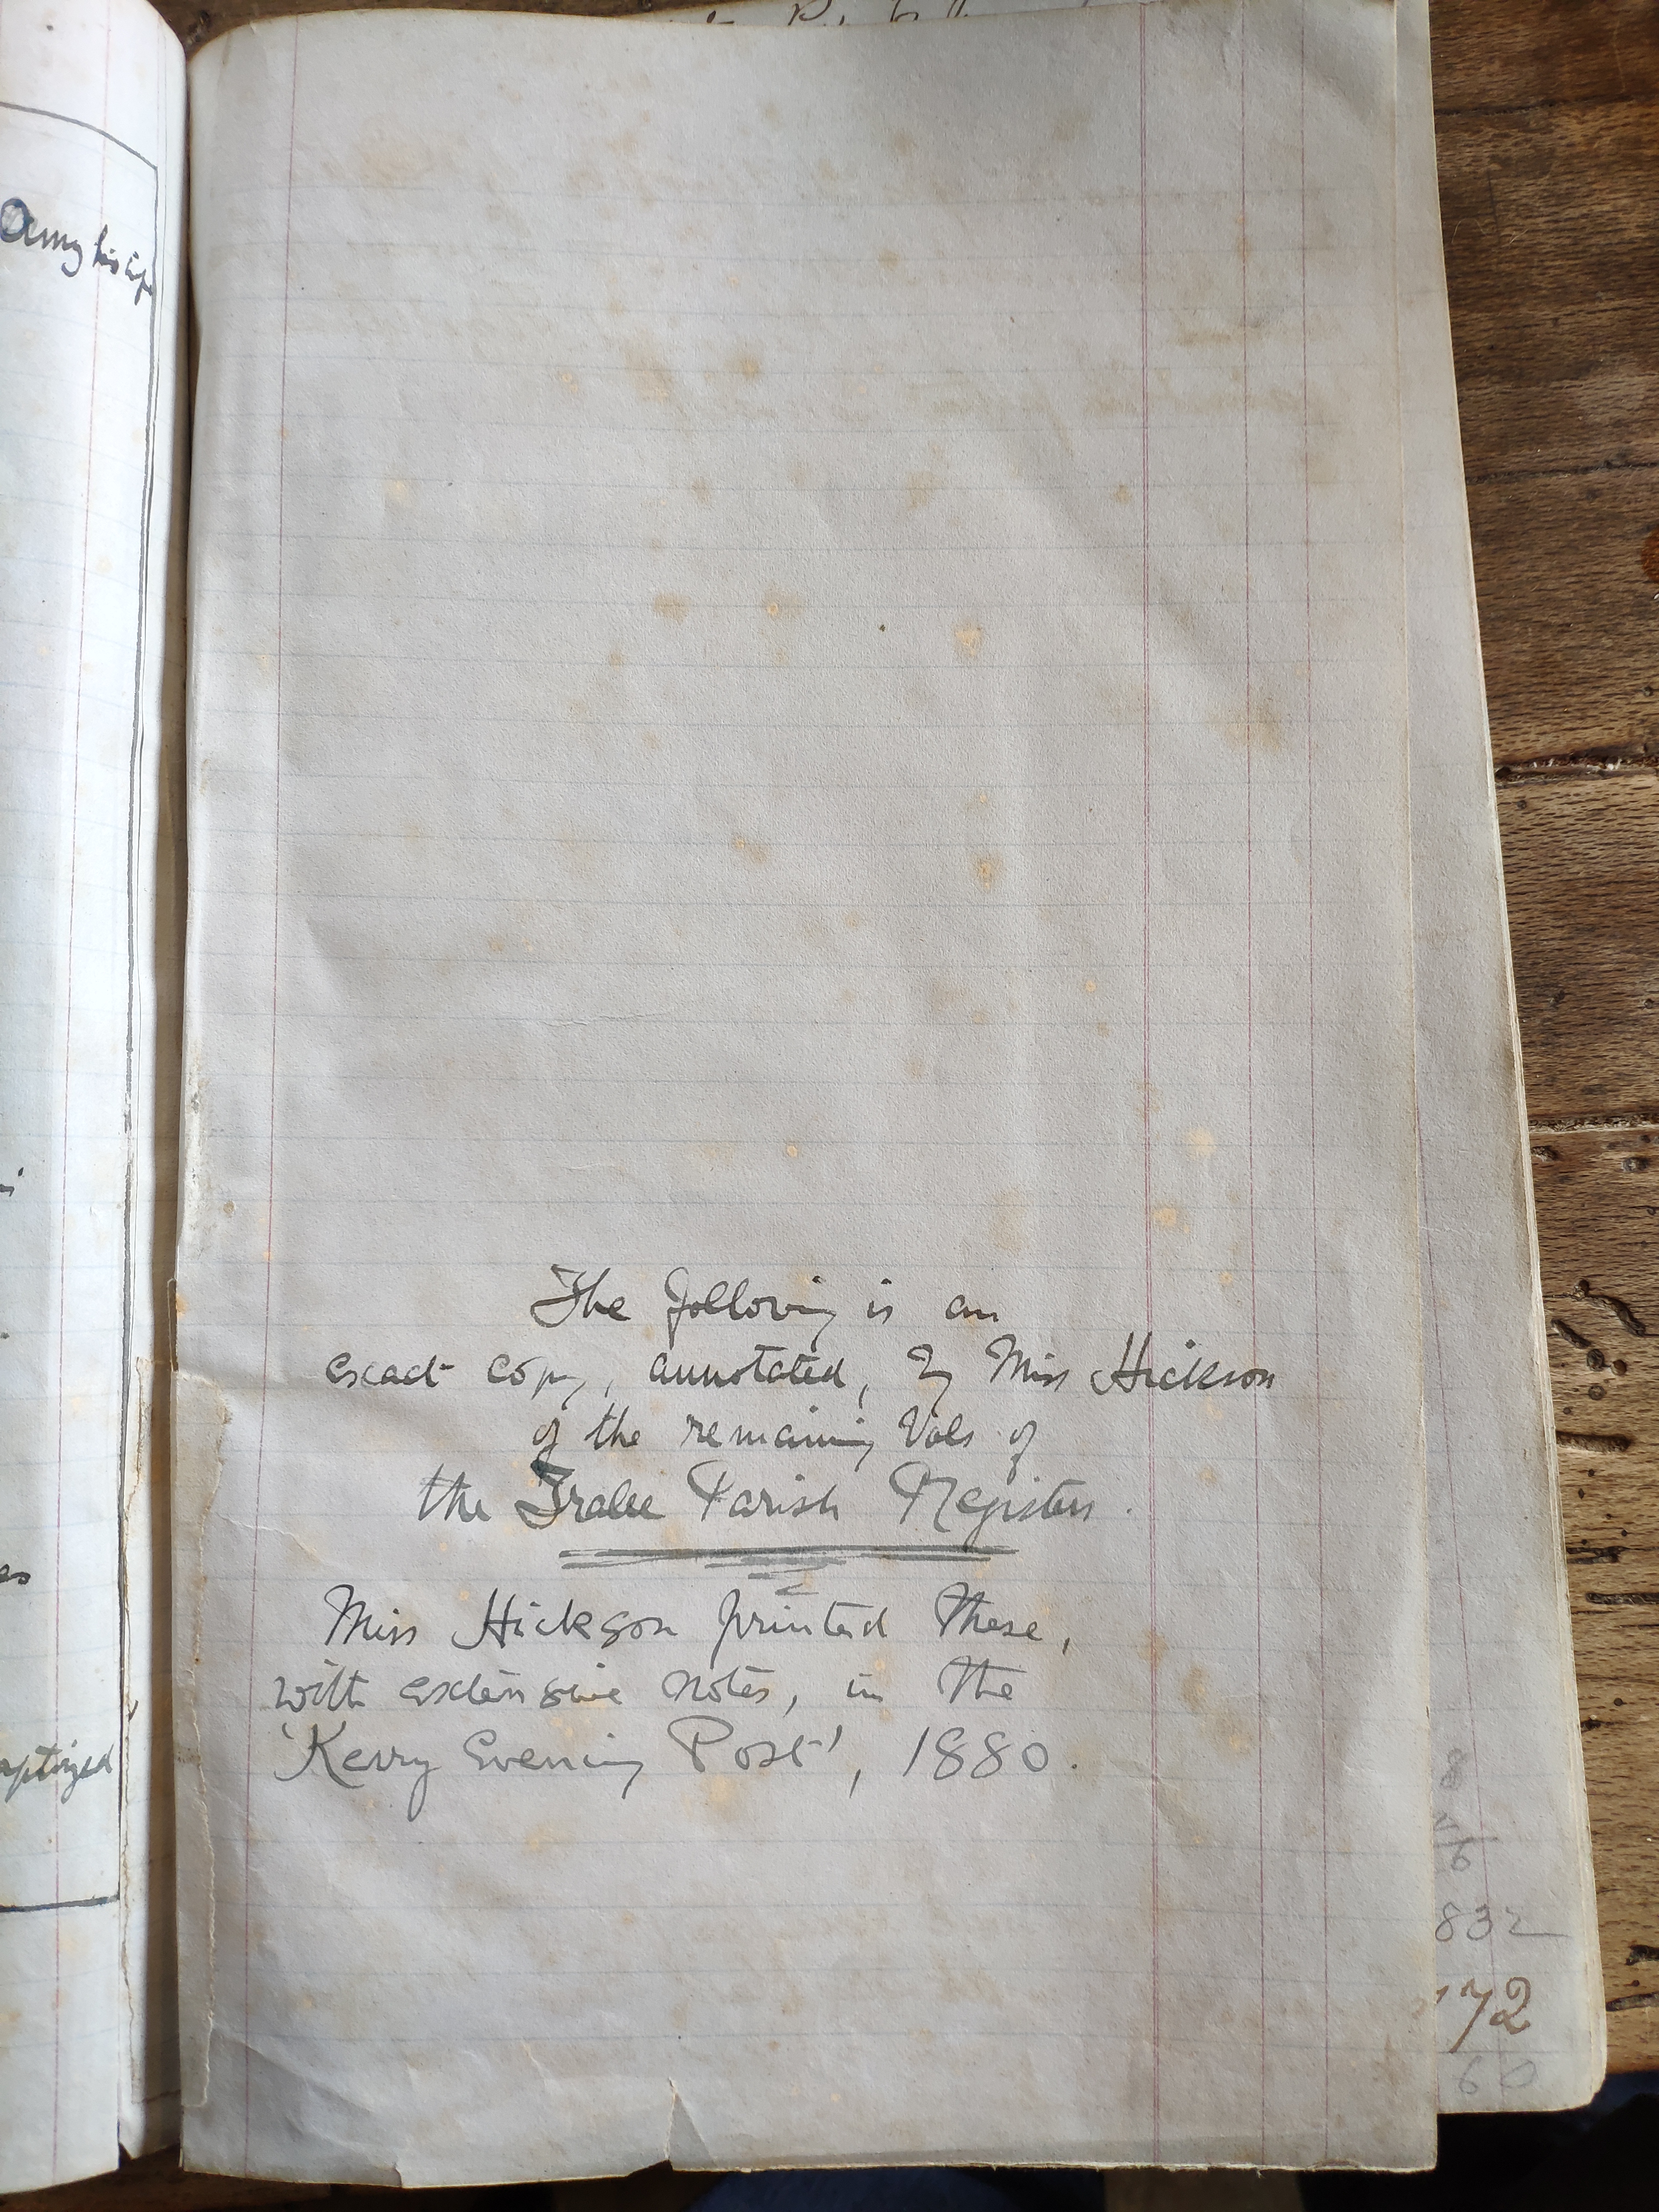 Amy his
The following is an
exact copy, annotated, by Miss Hickson
of the remaining Vols of
the Tralee Parish Registers.
Miss Hickson printed these,
with extensive notes, in the
'Kerry Evening Post', 1880.
aptized
8
6
832
172
60